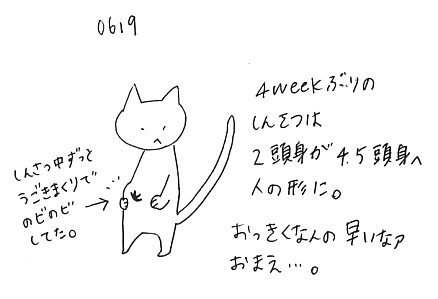 0619
4weekぶりの
しんさつは
2頭身が4.5頭身へ
人の形に。
おっきくなんの早いなァ
おまえ…。
しんさつ中ずっと
うごきまくりで
のびのび
してた。
…